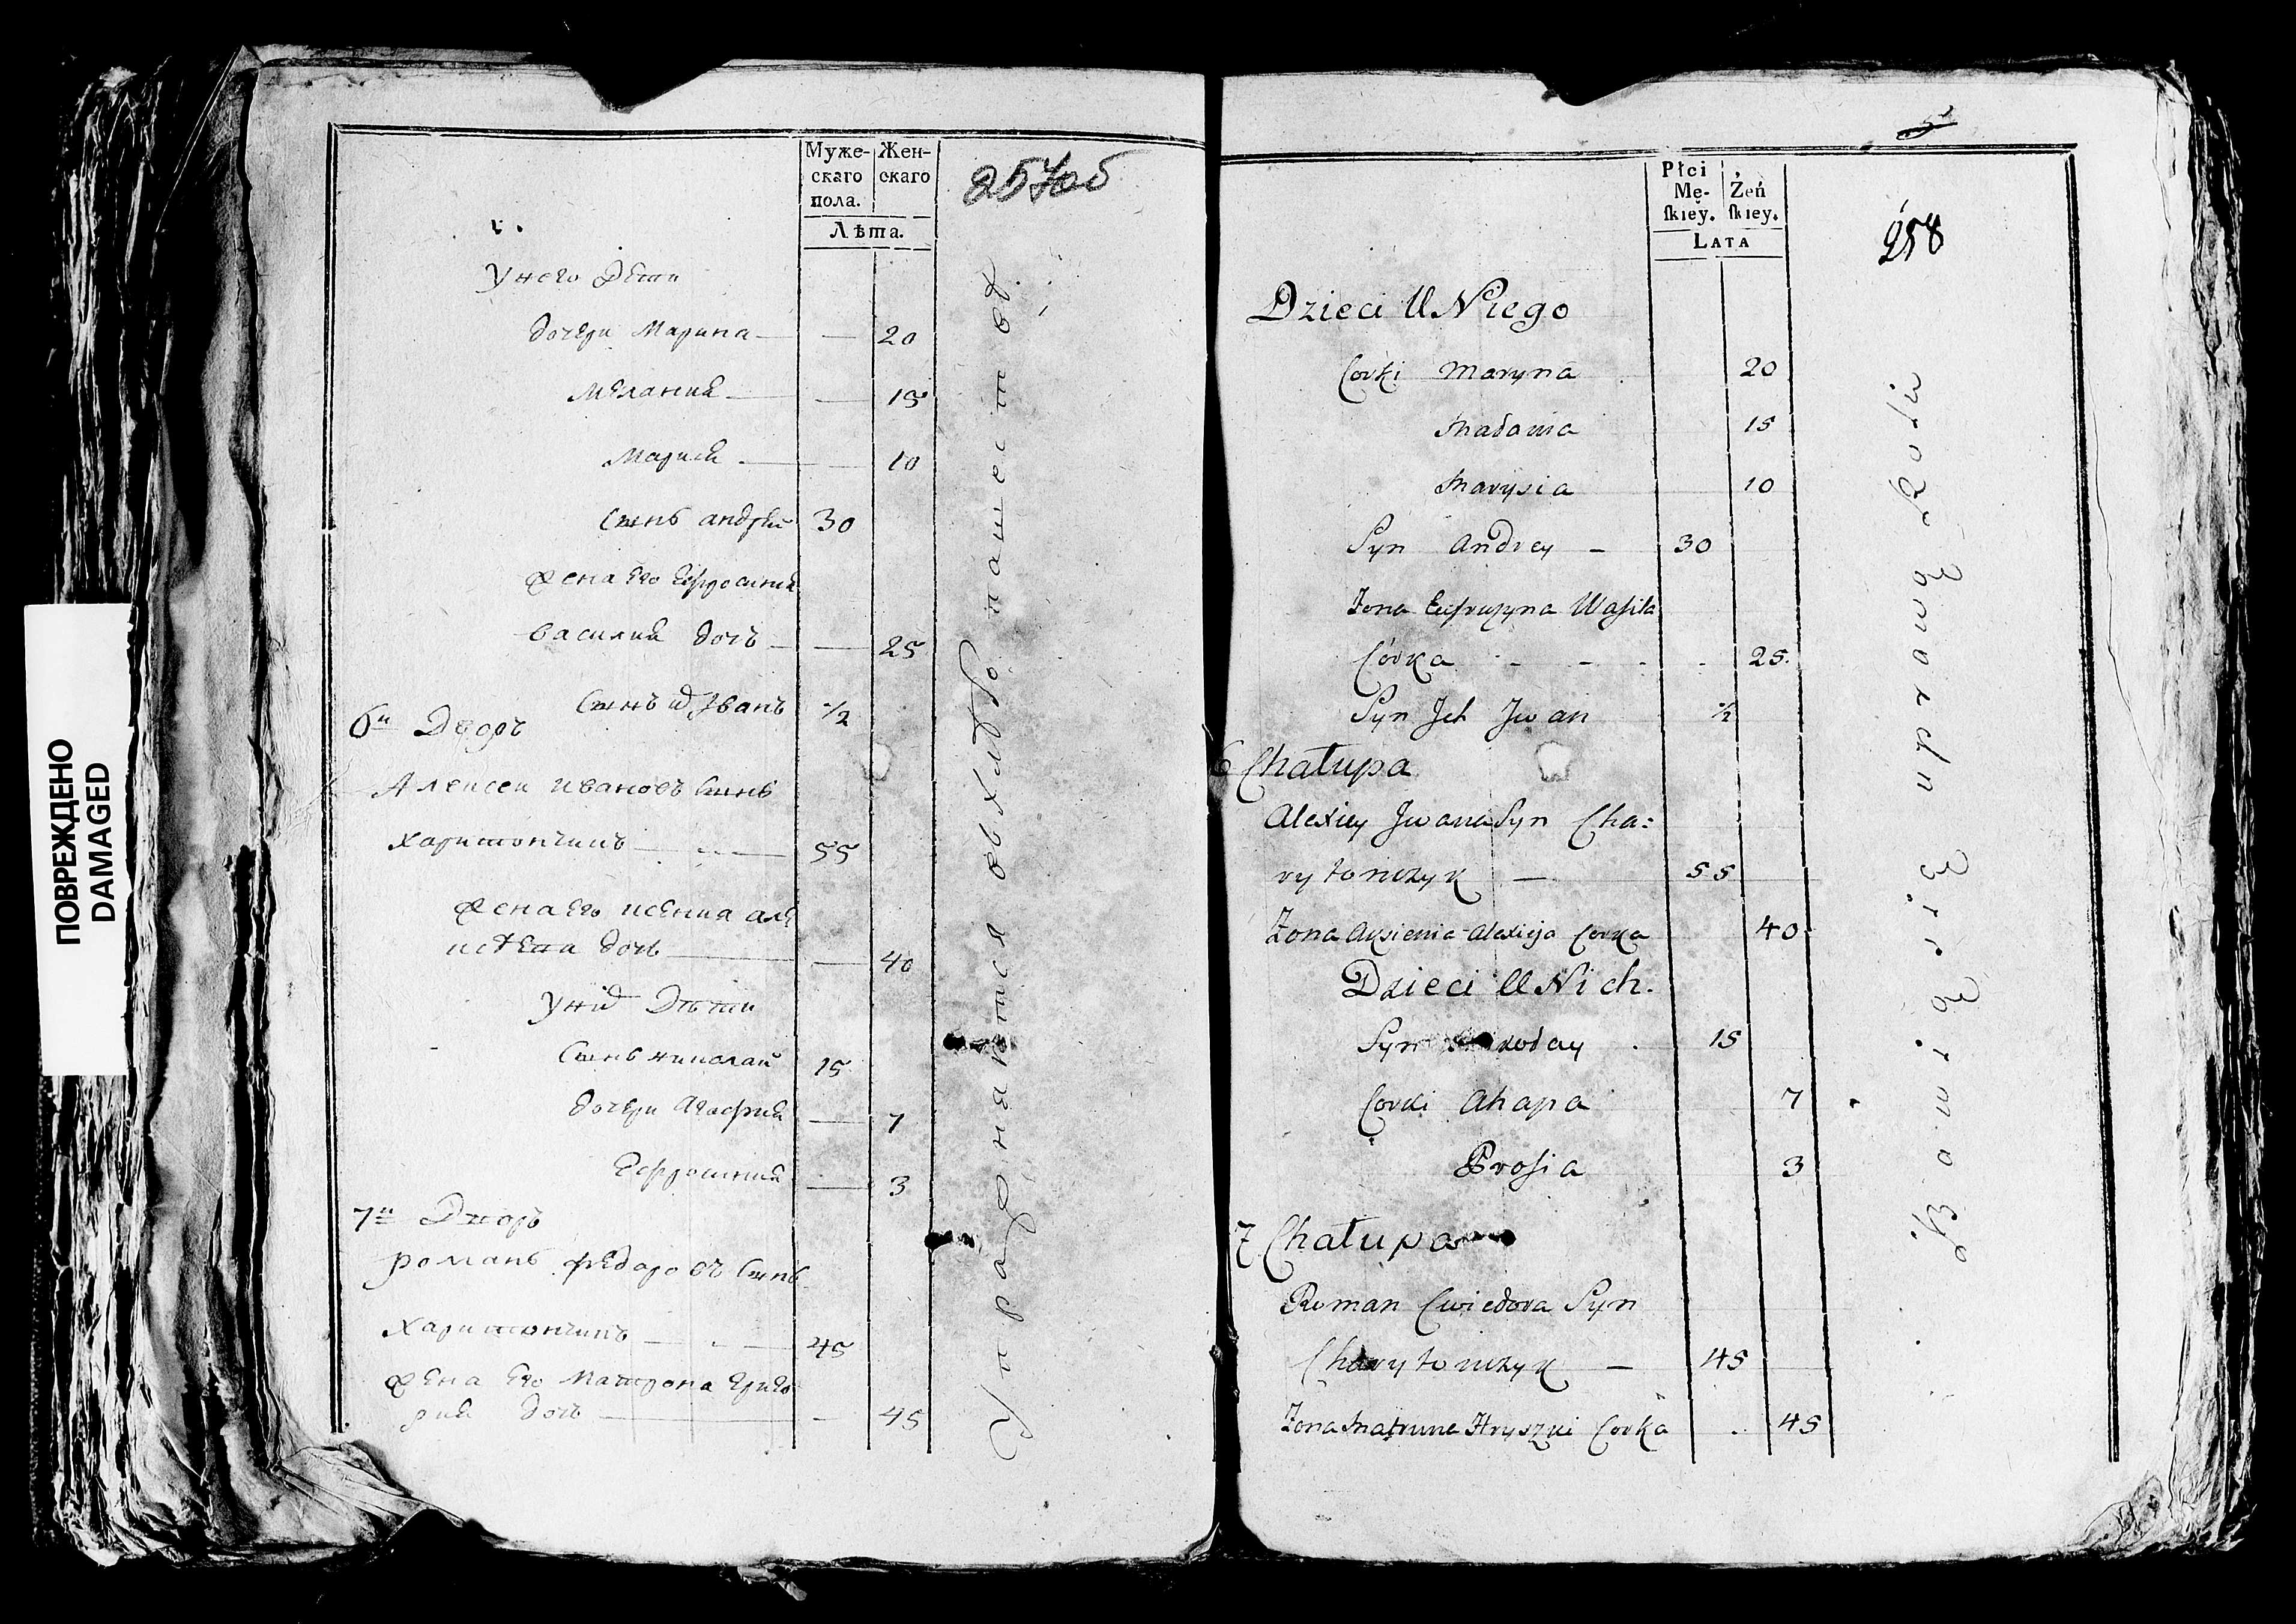 ПОВРЕЖДЕНО
DAMAGED
Муже- Жен-
скаго скаго
пола.
Лѣта.
257об
У него Дети
дочери Марина 20
Мелания 15
Марися 10
Сынъ андрей 30
жена Его Ефросиния
василия дочь 25
Сынъ их Иванъ ½
6й Дворъ
Алексеи ивановъ Сынъ
Харитончикъ 55
жена Его ксения але
ксѣя дочь 40
У них Дѣти
Сынъ николай 15
дочери Агафия 7
Ефросиния 3
7й Дворъ
романъ федоровъ Сынъ
Харитончикъ 45
жена Его Матрона григо
рия дочь 45
Упражняются в хлебопашестве.
5
Płci
Mę- Żeń
skiey. skiey.
LATA
258
Dzieci U Niego
Corki Maryna 20
Małania 15
Marysia 10
Syn Andrey 30
Żona Eufruzyna Wasila
Córka 25.
Syn Ich Jwan ½
6 Chałupa
Alexiey Jwana Syn Cha:
rytonczyk 55
Żona Axsienia Alexieja Corka 40
Dzieci U Nich.
Syn 15
Corki Ahapa 7
Prosia 3
7 Chałupa
Roman Cwiedora Syn
Charytonczyk 45
Żona Matruna Hryszki Corka 45
Bawią się uprawą Roli